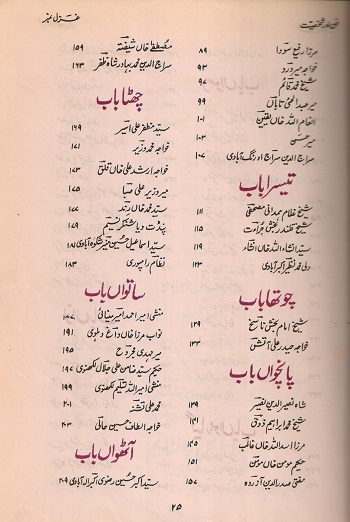 غزل نمبر
مرزا رفیع سودا ۸۹
خواجہ میر درد ۹۳
شیخ محمد قائم ۹۷
میر عبدالحئی تاباں ۹۹
انعام اللہ خاں یقین ۱۰۱
میر حسن ۱۰۴
سراج الدین سراج اورنگ آبادی ۱۰۷
تیسرا باب
شیخ غلام ہمدانی مصحفی ۱۱۱
شیخ قلندر بخش جرأت ۱۱۵
سید انشاء اللہ خاں انشاء ۱۱۹
ولی محمد نظیر اکبرآبادی ۱۲۳
چوتھا باب
شیخ امام بخش ناسخ ۱۲۹
خواجہ حیدر علی آتش ۱۳۳
پانچواں باب
شاہ نصیر الدین نصیر ۱۳۹
شیخ محمد ابراہیم ذوق ۱۴۱
مرزا اسد اللہ خاں غالب ۱۴۵
حکیم مومن خاں مومن ۱۵۱
مفتی صدر الدین آزردہ ۱۵۷
مصطفےٰ خاں شیفتہ ۱۵۹
سراج الدین محمد بہادر شاہ ظفر ۱۶۳
چھٹا باب
سید مظفر علی اسیر ۱۶۹
خواجہ محمد وزیر ۱۷۱
خواجہ ارشد علی خاں قلق ۱۷۳
میر وزیر علی صبا ۱۷۵
سید محمد خاں رند ۱۷۷
پنڈت دیا شنکر نسیم ۱۷۹
سید اسماعیل حسین منیر شکوہ آبادی ۱۸۱
نظام رامپوری ۱۸۳
ساتواں باب
منشی امیر احمد امیر مینائی ۱۸۷
نواب مرزا خاں داغ دہلوی ۱۹۱
میر مہدی مجروح ۱۹۵
حکیم سید ضامن علی جلال لکھنوی ۱۹۷
منشی امیر اللہ تسلیم لکھنوی ۱۹۹
محمد علی تشنہ ۲۰۱
خواجہ الطاف حسین حالی ۲۰۳
آٹھواں باب
سید اکبر حسین رضوی اکبر الہ آبادی ۲۰۹
۲۵